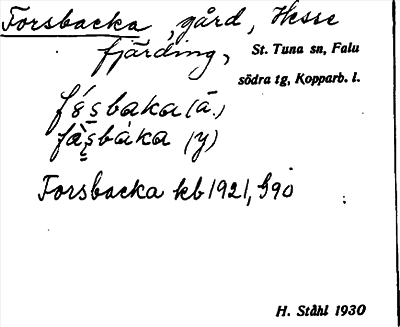 Forsbacka, gård, Hesse
fjärding, St. Tuna sn, Falu
södra tg, Kopparb. l.
fó̤s̱baka (ä.)
fås̱bàka (y)
Forsbacka kb 1921, G90
H. Ståhl 1930